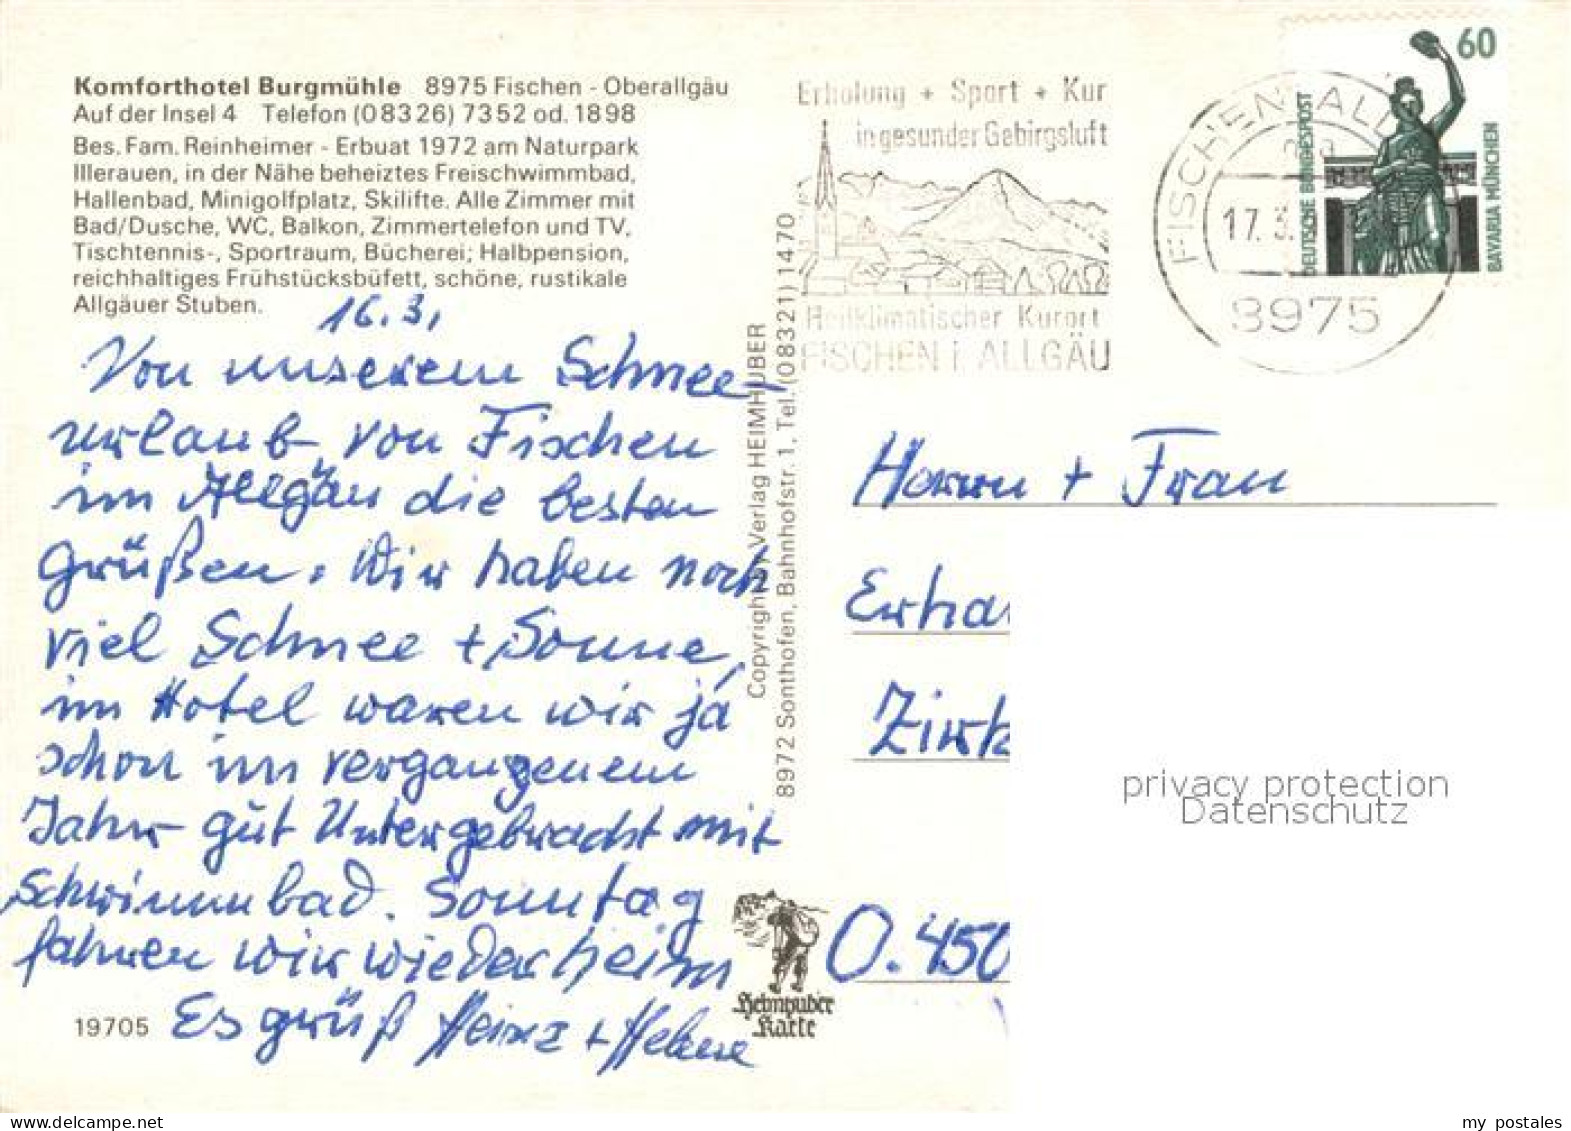 Komforthotel Burgmühle 8975 Fischen - Oberallgäu
Auf der Insel 4 Telefon (08326) 7352 od. 1898
Bes. Fam. Reinheimer - Erbuat 1972 am Naturpark
Illerauen, in der Nähe beheiztes Freischwimmbad,
Hallenbad, Minigolfplatz, Skilifte. Alle Zimmer mit
Bad/Dusche, WC, Balkon, Zimmertelefon und TV,
Tischtennis-, Sportraum, Bücherei; Halbpension,
reichhaltiges Frühstücksbüfett, schöne, rustikale
Allgäuer Stuben.
16.3.
Von unserem Schnee-
urlaub von Fischen
im Allgäu die besten
Grüßen. Wir haben noch
viel Schnee + Sonne,
im Hotel waren wir ja
schon im vergangenem
Jahr gut Untergebracht mit
Schwimmbad. Sonntag
fahren wir wieder heim
Es grüß Heinz + Helene
19705
Copyright by Verlag HEIMHUBER
8972 Sonthofen, Bahnhofstr. 1, Tel. (08321) 1470
Heimhuber
Karte
Erholung + Sport + Kur
in gesunder Gebirgsluft
Heilklimatischer Kurort
FISCHEN i. ALLGÄU
FISCHEN ALL
17. 3.
8975
60
DEUTSCHE BUNDESPOST
BAVARIA MÜNCHEN
Herrn + Frau
Erha
Zirk
O. 450
privacy protection
Datenschutz
my postales